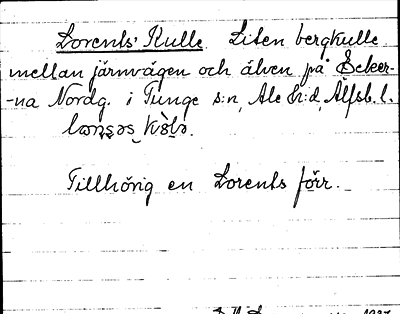 Lorents' Kulle Liten bergkulle
mellan järnvägen och älven på Äcker-
-na Nordg. i Tunge s:n, Ale h:d, Älfsb. l.
Tillhörig en Lorents förr.